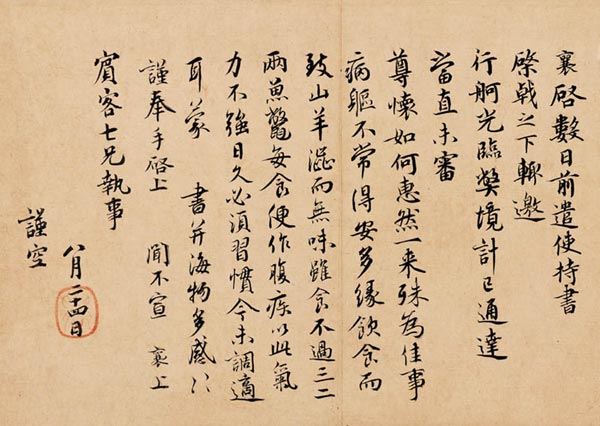 襄啓數日前遣使持書
棨戟之下輒邀
行舸光臨獘境計已通達
當直未審
尊懷如何惠然一来殊為佳事
病軀不常得安多緣飲食而
致山羊澀而無味雖食不過三二
兩魚鼈每食便作腹疾以此氣
力不強日久必須習慣今未調適
耳蒙 書并海物多感〻
謹奉手啓上 聞不宣 襄上
賓客七兄執事
八月二十四日
謹空